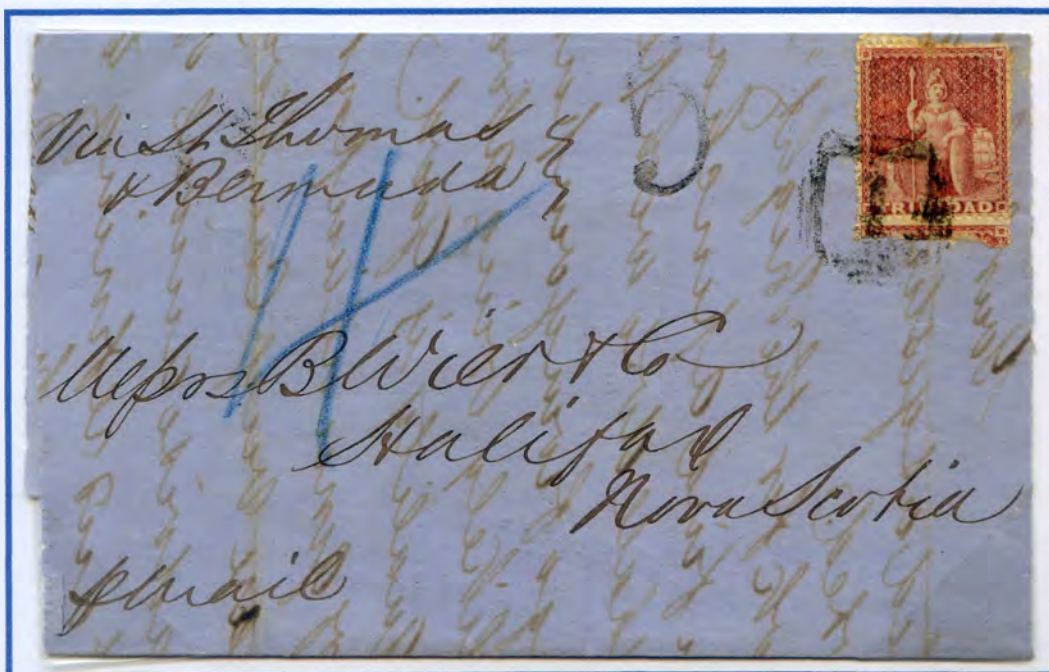 Via St. Thomas
& Bermuda
5
TRINIDAD
1/
Messrs B Wier & Co
Halifax
Nova Scotia
p mail